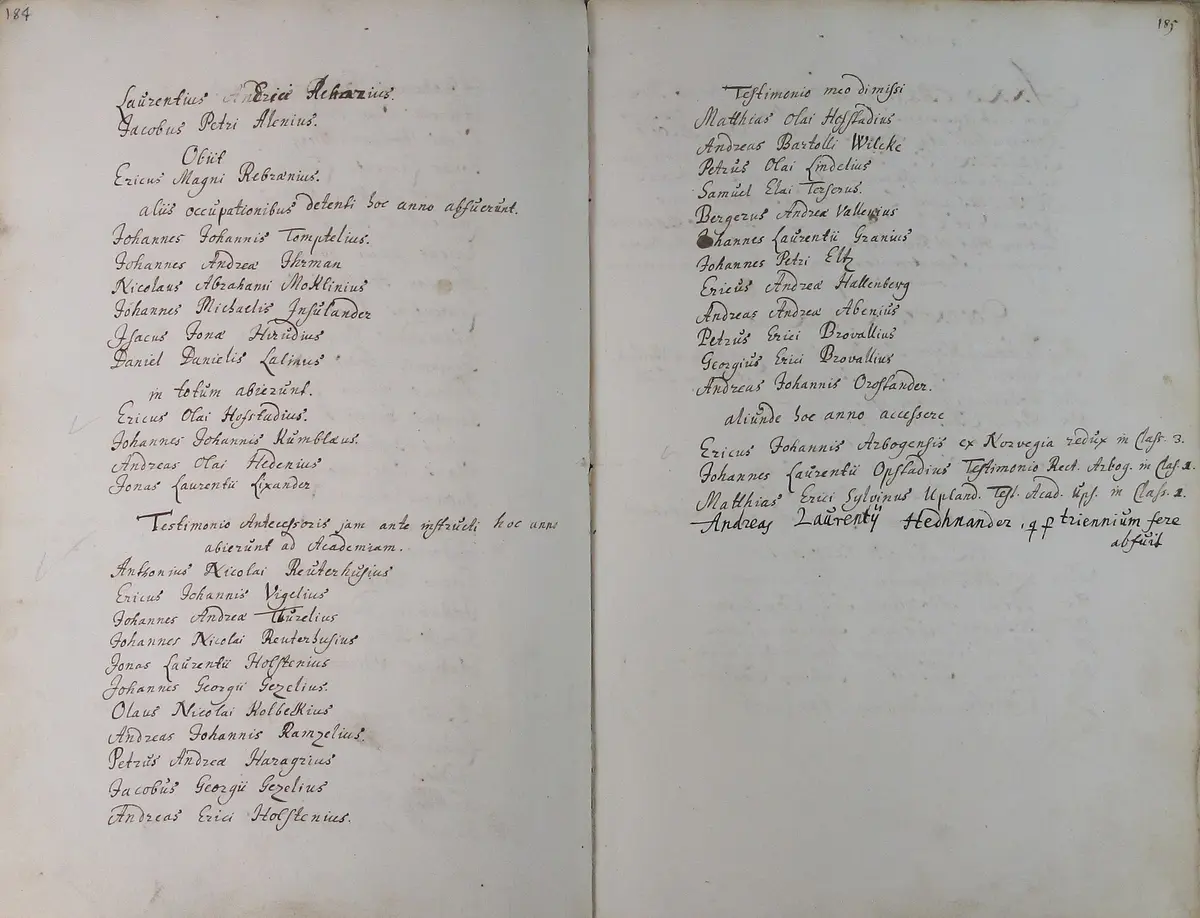 184
Laurentius Andreæ Rehnzius.
Jacobus Petri Alenius.
Obiit
Ericus Magni Rebrænius.
aliis occupationibus detenti hoc anno abfuerunt.
Johannes Johannis Tomptelius.
Johannes Andreæ Ihrman
Nicolaus Abrahami Moklinius
Johannes Michaelis Insulander
Isacus Jonæ Hirudius
Daniel Danielis Lalinus
in totum abierunt.
Ericus Olai Hofstadius.
Johannes Johannis Kumblæus.
Andreas Olai Hedenius
Jonas Laurentii Lixander
Testimonio Antecessoris jam ante instructi hoc anno
abierunt ad Academiam.
Anthonius Nicolai Reuterhusius
Ericus Johannis Vigelius
Johannes Andreæ Thurelius
Johannes Nicolai Reuterhusius
Jonas Laurentii Holstenius
Johannes Georgii Gezelius.
Olaus Nicolai Kolbeckius
Andreas Johannis Ramzelius.
Petrus Andreæ Haragrius
Jacobus Georgii Gezelius
Andreas Erici Holstenius.
185
Testimonio meo dimissi
Matthias Olai Hofstadius
Andreas Bartolli Wilcke
Petrus Olai Lindelius
Samuel Elai Terserus.
Bergerus Andreæ Vallerius
Johannes Laurentii Granius
Johannes Petri Eltz
Ericus Andreæ Hallenberg
Andreas Andreæ Abenius
Petrus Erici Brovallius
Georgius Erici Brovallius
Andreas Johannis Orostander.
aliunde hoc anno accessere
Ericus Johannis Arbogensis ex Norvegia redux in Class. 3.
Johannes Laurentii Opstadius Testimonio Rect. Arbog. in Clas. 2.
Matthias Erici Sylvinus Upland. Test. Acad. Ups. in Class. 2.
Andreas Laurentij Hedhnander, q p triennium fere
abfuit